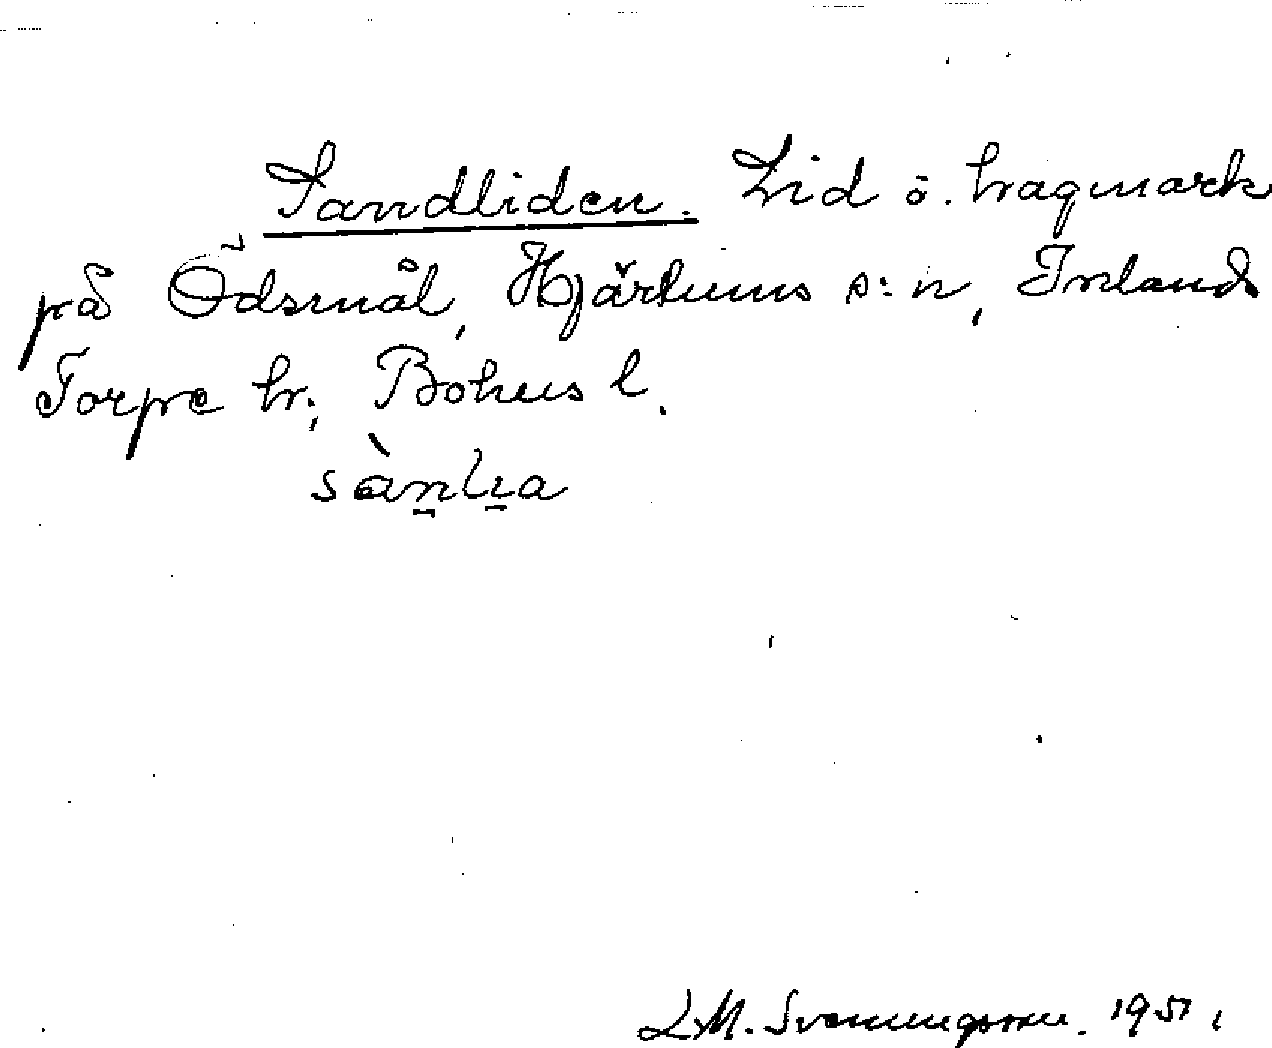 Sandliden. Lid o. hagmark
på Ödsmål, Hjärtums s:n, Inlands
Torpe hr, Bohus l.
sànlıa
L.M. Svenungsson. 1951.